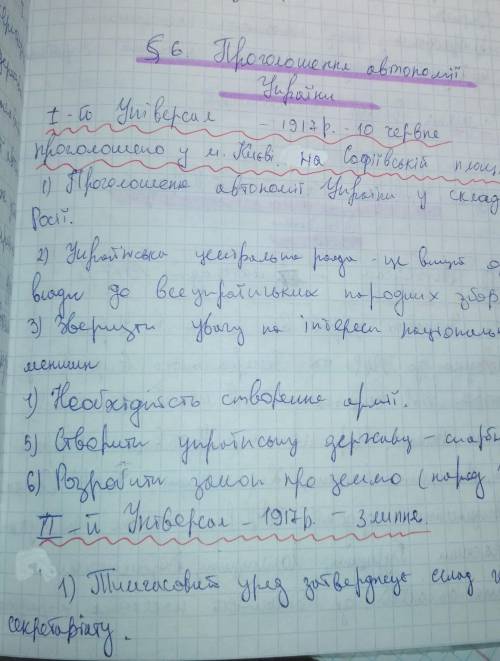 § 6 Проголошення автономії
України
I-й Універсал - 1917р. - 10 червня
проголошено у м. Києві. на Софіївській площ
1) Проголошення автономії України у склад
Росії.
2) Українська центральна рада - це вищий о
влади до всеукраїнських народних збор
3) Звернути увагу на інтереси національн
меншин
1) Необхідність створення армії.
5) Створити українську державу - скарбн
6) Розробити закон про землю (народ
II-й Універсал - 1917р. - 3 липня.
1) Тимчасовий уряд затверджує склад г
секретаріату.